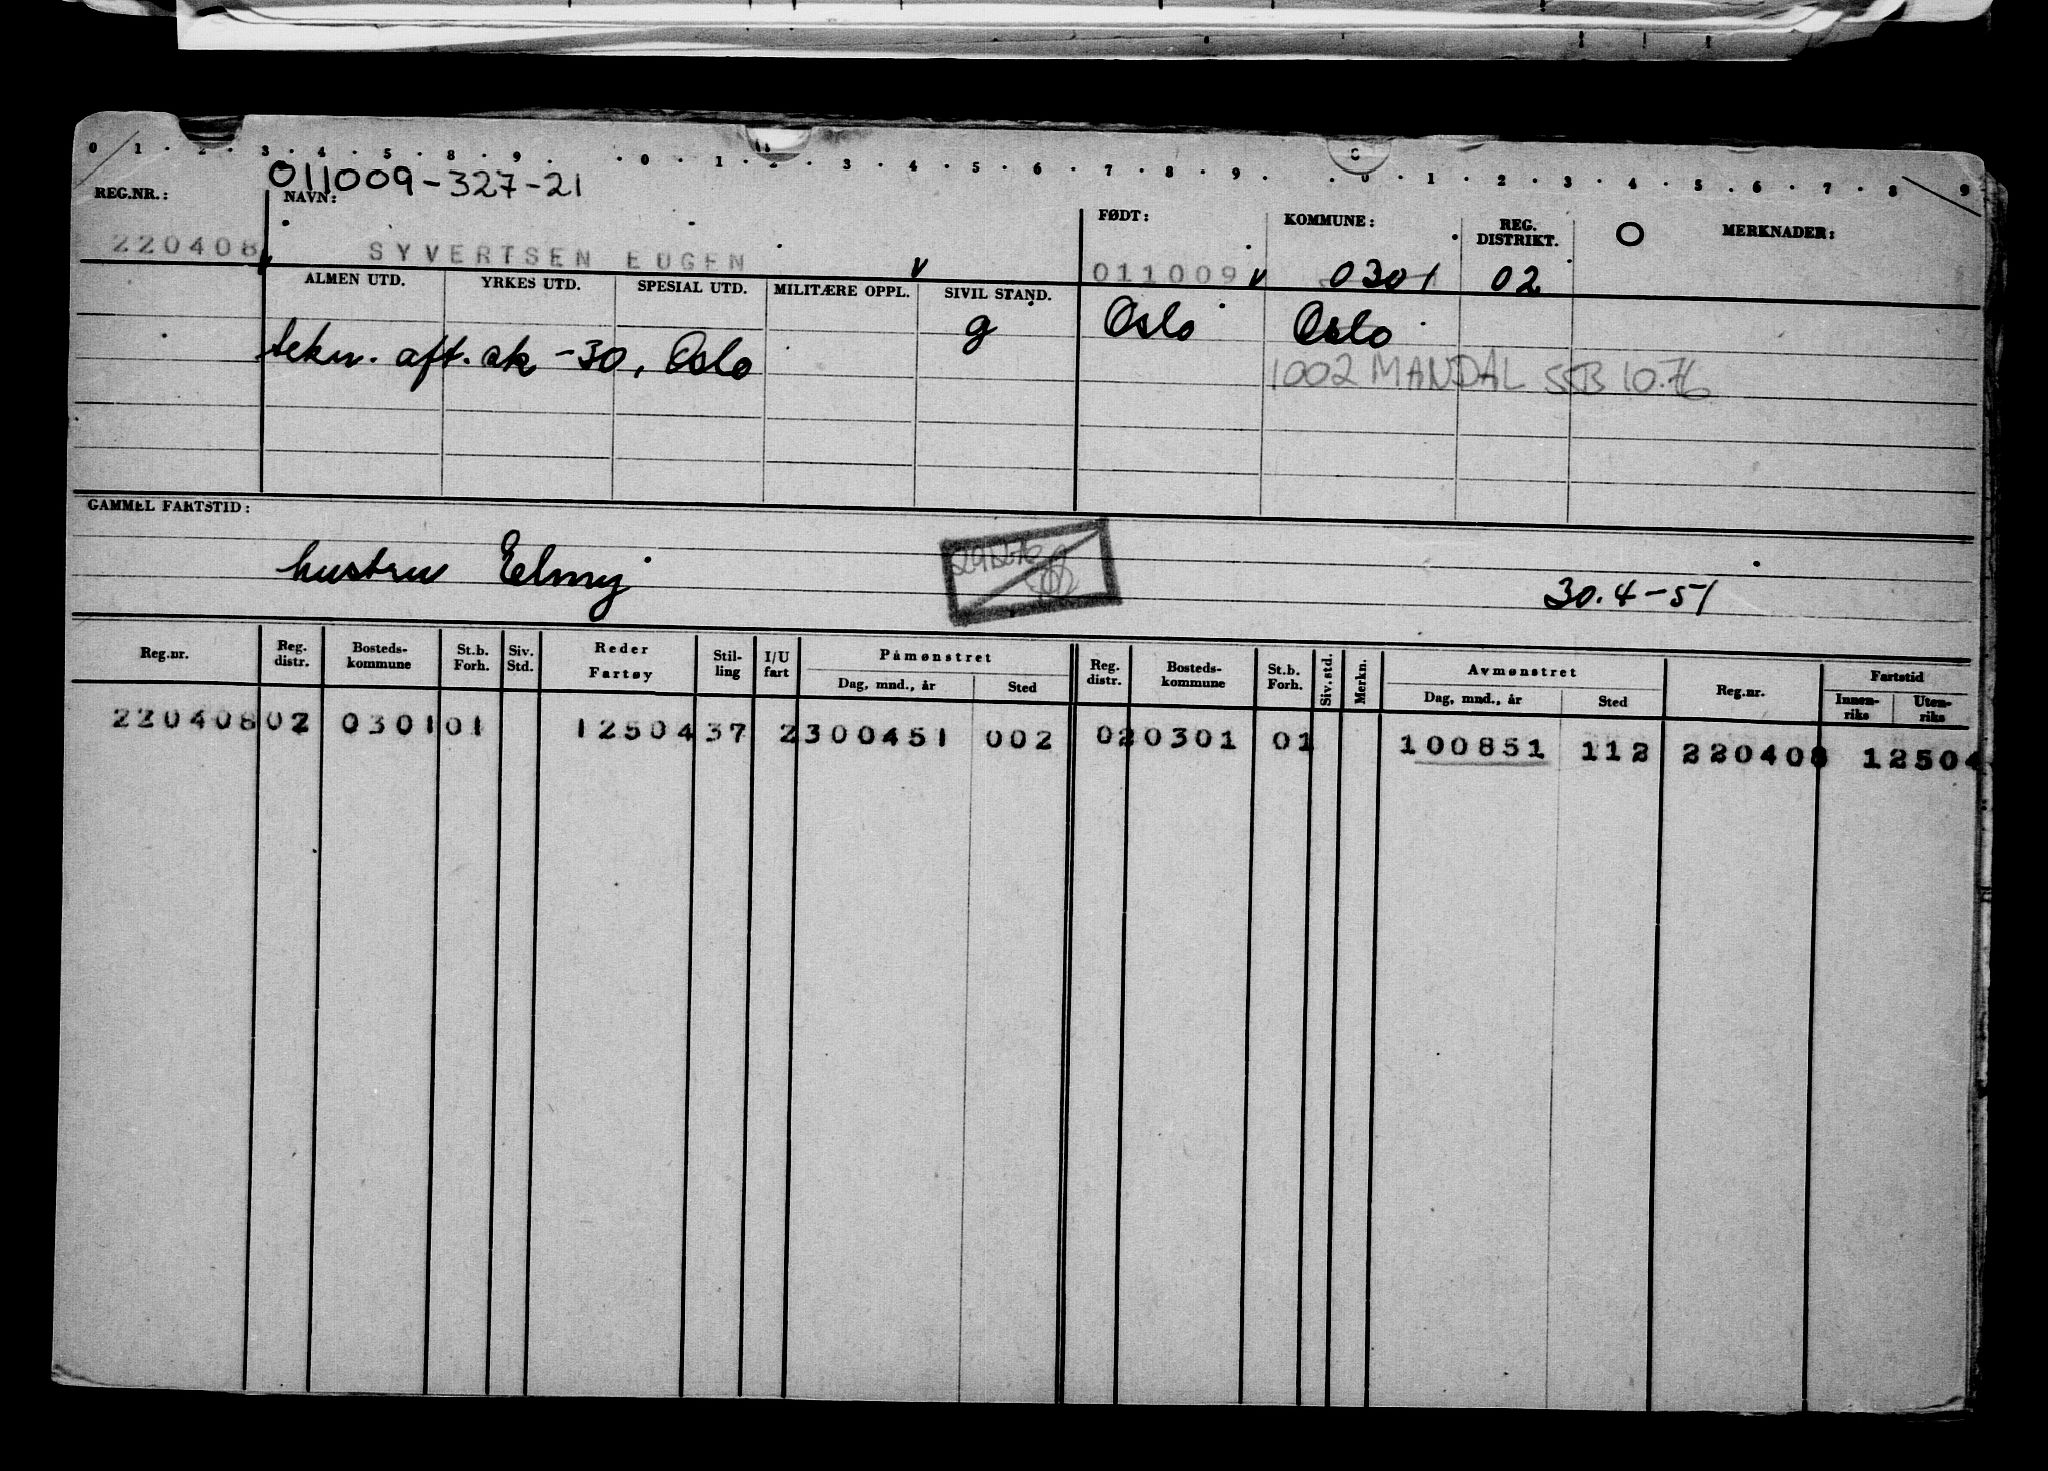 0 1 . 2 . 3 . 4 . 5 . 8 . 9 . . 0 . 1 . 2 . 3 . 4 . 5 . 6 . 7 . 8 . 9 . . 0 . 1 . 2 . 3 . 4 . 5 . 6 . 7 . 8 9
011009-327-21
REG.NR.: NAVN: FØDT: KOMMUNE: REG. DISTRIKT. MERKNADER:
220408 SYVERTSEN EUGEN 011009 0301 02
ALMEN UTD. YRKES UTD. SPESIAL UTD. MILITÆRE OPPL. SIVIL STAND.
tekn. aft. sk -30, Oslo g Oslo Oslo
1002 MANDAL SSB 10.76
GAMMEL FARTSTID:
hustru Elmy
30.4-51
Reg.nr. Reg. distr. Bosteds-kommune St.b. Forh. Siv. Std. Reder Fartøy Stil-ling I/U fart Påmønstret Dag, mnd., år Sted Reg. distr. Bosteds-kommune St.b. Forh. Siv. std. Merkn. Avmønstret Dag, mnd., år Sted Reg.nr. Fartstid Innen-riks Uten-riks
220408 02 0301 01 12504 37 2 300451 002 02 0301 01 100851 112 220408 12504